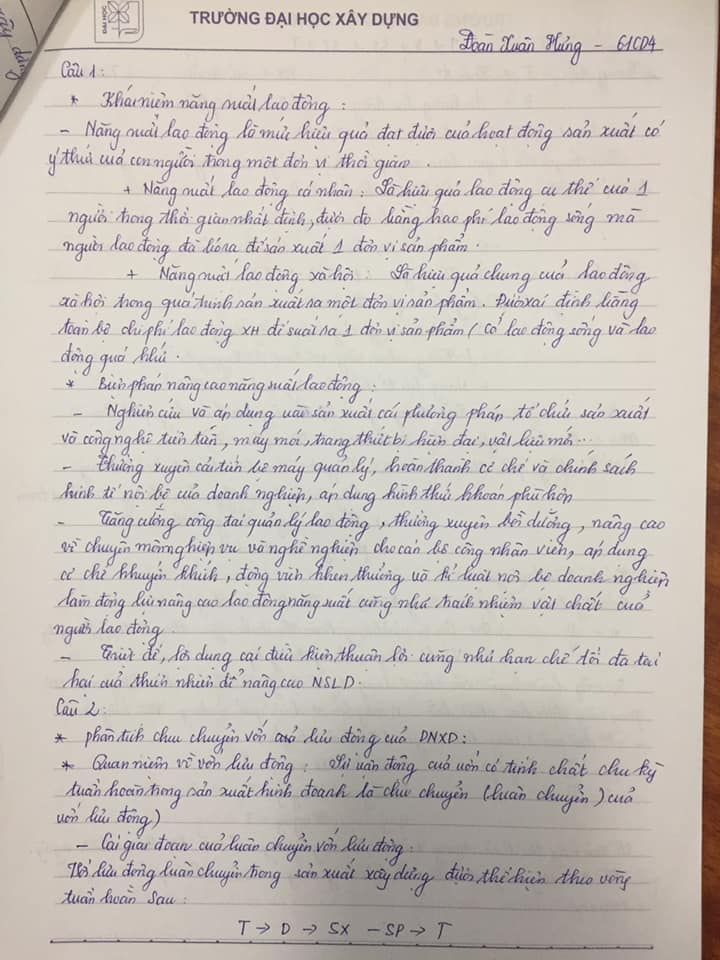 xây dựng
ĐẠI HỌC
TRƯỜNG ĐẠI HỌC XÂY DỰNG
Đoàn Xuân Hưng - 61CD4
Câu 1:
* Khái niệm năng suất lao động :
- Năng suất lao động là mức hiệu quả đạt được của hoạt động sản xuất có
ý thức của con người trong một đơn vị thời gian .
+ Năng suất lao động cá nhân : Là hiệu quả lao động cụ thể của 1
người trong thời gian nhất định, được đo bằng hao phí lao động sống mà
người lao động đã bỏ ra để sản xuất 1 đơn vị sản phẩm .
+ Năng suất lao động xã hội : Là hiệu quả chung của lao động
xã hội trong quá trình sản xuất ra một đơn vị sản phẩm . Được xác định bằng
toàn bộ chi phí lao động XH để suất ra 1 đơn vị sản phẩm ( Cổ lao động sống và lao
động quá khứ .
* Biện pháp nâng cao năng suất lao động :
- Nghiên cứu và áp dụng vào sản xuất các phương pháp tổ chức sản xuất
và công nghệ tiên tiến , máy mới , trang thiết bị hiện đại , vật liệu mới ...
- Thường xuyên cải tiến bộ máy quản lý, hoàn thành cơ chế và chính sách
kinh tế nội bộ của doanh nghiệp, áp dụng hình thức khoán phù hợp
- Tăng cường công tác quản lý lao động , thường xuyên bồi dưỡng , nâng cao
về chuyên môn nghiệp vụ và nghề nghiệp cho cán bộ công nhân viên, áp dụng
cơ chế khuyến khích , động viên khen thưởng và kỉ luật nội bộ doanh nghiệp
làm động lực nâng cao lao động năng suất cũng như trách nhiệm vật chất của
người lao động .
- Triệt để, lợi dụng các điều kiện thuận lợi cũng như hạn chế tối đa tác
hại của thiên nhiên để nâng cao NSLD .
Câu 2 :
* phân tích chu chuyển vốn lưu động của DNXD :
* Quan niệm về vốn lưu động : Sự vận động của vốn có tính chất chu kỳ
tuần hoàn trong sản xuất kinh doanh là chu chuyển ( luân chuyển ) của
vốn lưu động )
- Các giai đoạn của luân chuyển vốn lưu động .
Vốn lưu động luân chuyển trong sản xuất xây dựng được thể hiện theo vòng
tuần hoàn sau :
T → D → SX - SP → T